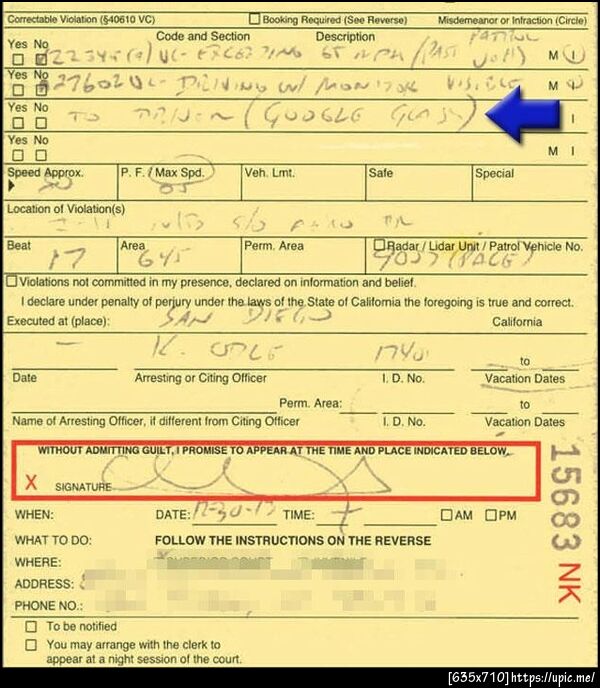 Correctable Violation (§40610 VC) Booking Required (See Reverse) Misdemeanor or Infraction (Circle)
Yes No Code and Section Description PATROL
22349(a) VC - EXCEEDING 65 MPH (FAST M I
Yes No 27602 VC - DRIVING W/ MONITOR VISIBLE M I
Yes No TO DRIVER (GOOGLE GLASS) I
Yes No M I
Speed Approx. P. F. / Max Spd. Veh. Lmt. Safe Special
65
Location of Violation(s)
S/O AERO DR
Beat Area Perm. Area Radar / Lidar Unit / Patrol Vehicle No.
17 645 (PACE)
Violations not committed in my presence, declared on information and belief.
I declare under penalty of perjury under the laws of the State of California the foregoing is true and correct.
Executed at (place): SAN DIEGO California
K. to
Date Arresting or Citing Officer I. D. No. Vacation Dates
Perm. Area: to
Name of Arresting Officer, if different from Citing Officer I. D. No. Vacation Dates
WITHOUT ADMITTING GUILT, I PROMISE TO APPEAR AT THE TIME AND PLACE INDICATED BELOW.
X SIGNATURE
WHEN: DATE: TIME: AM PM
WHAT TO DO: FOLLOW THE INSTRUCTIONS ON THE REVERSE
WHERE:
ADDRESS:
PHONE NO.:
To be notified
You may arrange with the clerk to
appear at a night session of the court.
15683 NK
[635x710]https://upic.me/